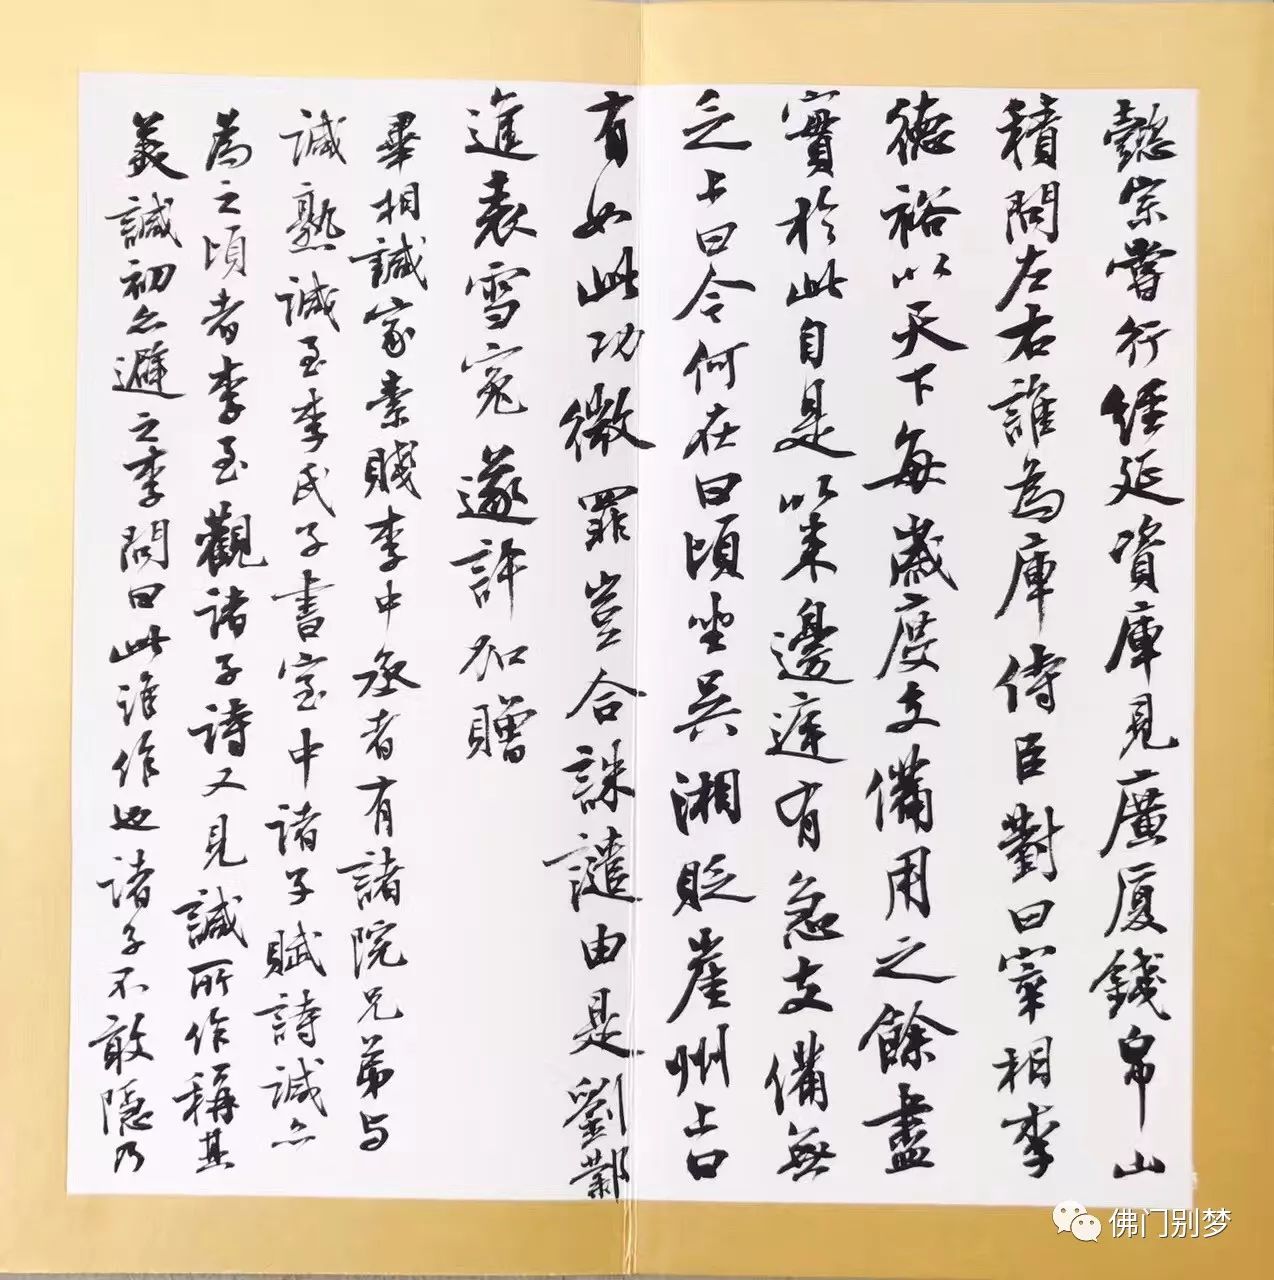 懿宗嘗行經延資庫見廣廈錢帛山
積問左右誰為庫侍臣對曰宰相李
德裕以天下每歲度支備用之餘盡
實於此自是以来邊庭有急支備無
乏上曰今何在曰頃坐吳湘貶崖州上曰
有如此功微罪豈合誅譴由是劉鄴
進表雪冤遂許加贈
畢相諴家素賤李中丞者有諸院兄弟与
諴熟諴至李氏子書室中諸子賦詩諴亦
為之頃者李至觀諸子詩又見諴所作稱其
美諴初亦避之李問曰此誰作也諸子不敢隱乃
佛门别梦